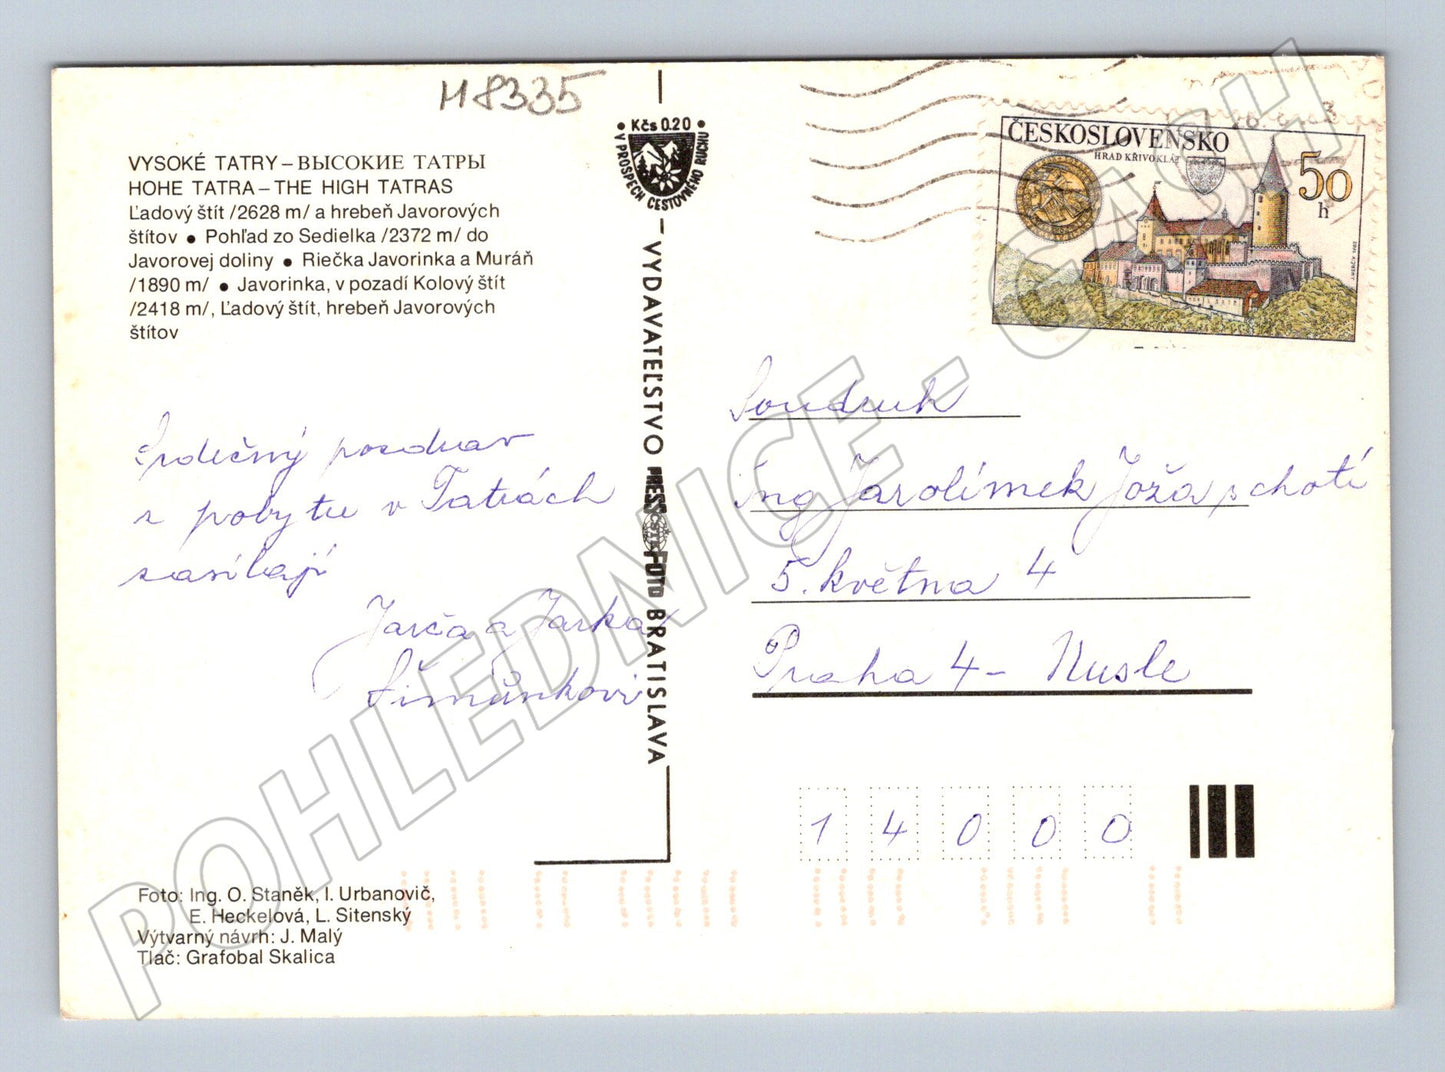 H8335
VYSOKÉ TATRY – ВЫСОКИЕ ТАТРЫ
HOHE TATRA – THE HIGH TATRAS
Ľadový štít /2628 m/ a hrebeň Javorových
štítov ● Pohľad zo Sedielka /2372 m/ do
Javorovej doliny ● Riečka Javorinka a Muráň
/1890 m/ ● Javorinka, v pozadí Kolový štít
/2418 m/, Ľadový štít, hrebeň Javorových
štítov
Srdečný pozdrav
z pobytu v Tatrách
zasílají
Jarča a Jarka
Šimůnkovi
Foto: Ing. O. Staněk, I. Urbanovič,
E. Heckelová, L. Sitenský
Výtvarný návrh: J. Malý
Tlač: Grafobal Skalica
• Kčs 0.20 •
V PROSPECH CESTOVNÉHO RUCHU
– VYDAVATEĽSTVO PRESSFOTO BRATISLAVA
ČESKOSLOVENSKO
HRAD KŘIVOKLÁT
50
h
Soudruh
Ing Jarolímek Joža s chotí
5. května 4
Praha 4 – Nusle
1 4 0 0 0
POHLEDNICE - CASH